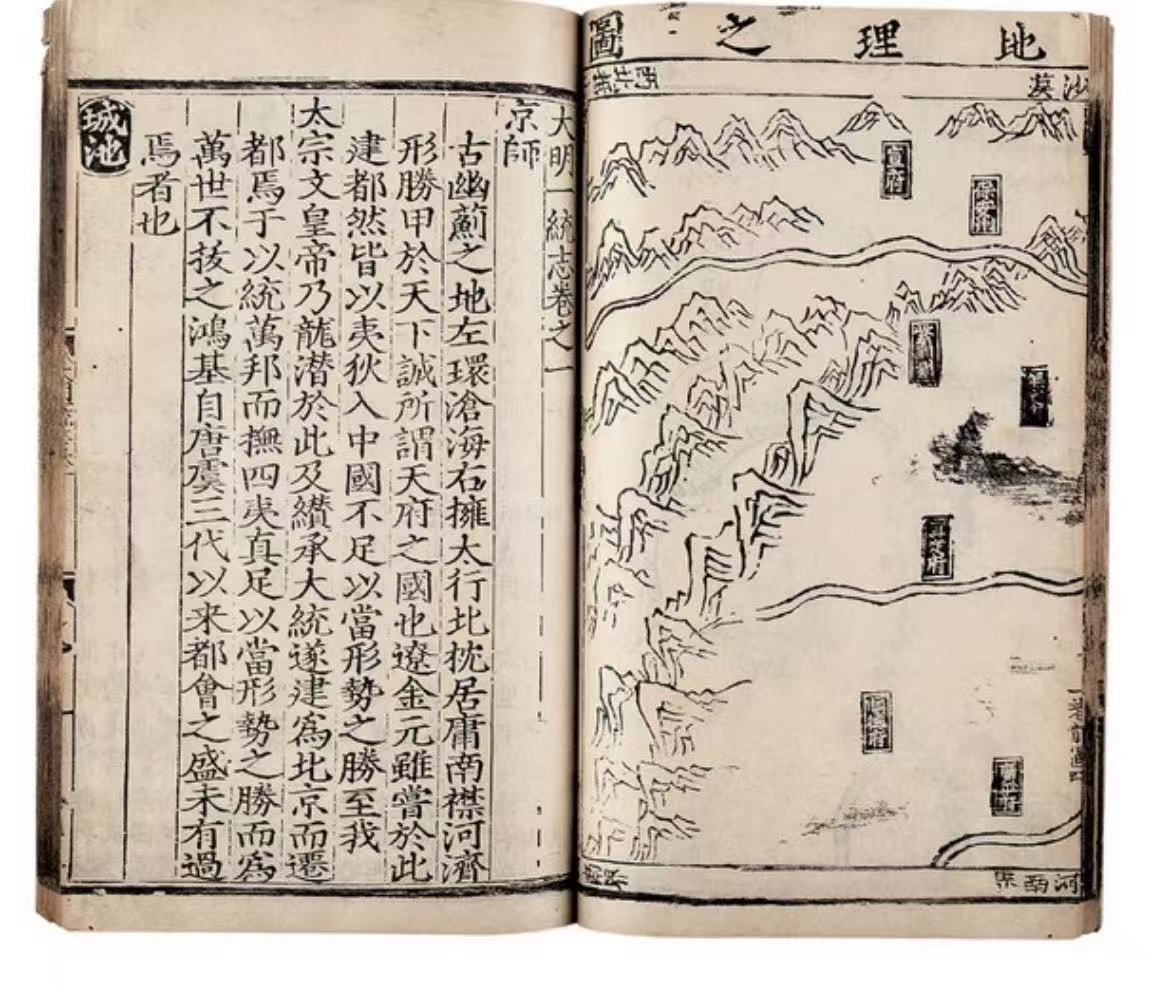 地理之圖
宣府
順德府
河南界
大明一統志卷之一
京師
古幽薊之地左環滄海右擁太行北枕居庸南襟河濟
形勝甲於天下誠所謂天府之國也遼金元雖嘗於此
建都然皆以夷狄入中國不足以當形勢之勝至我
太宗文皇帝乃龍潜於此及纘承大統遂建爲北京而遷
都焉于以統萬邦而撫四夷真足以當形勢之勝而爲
萬世不拔之鴻基自唐虞三代以来都會之盛未有過
焉者也
城池